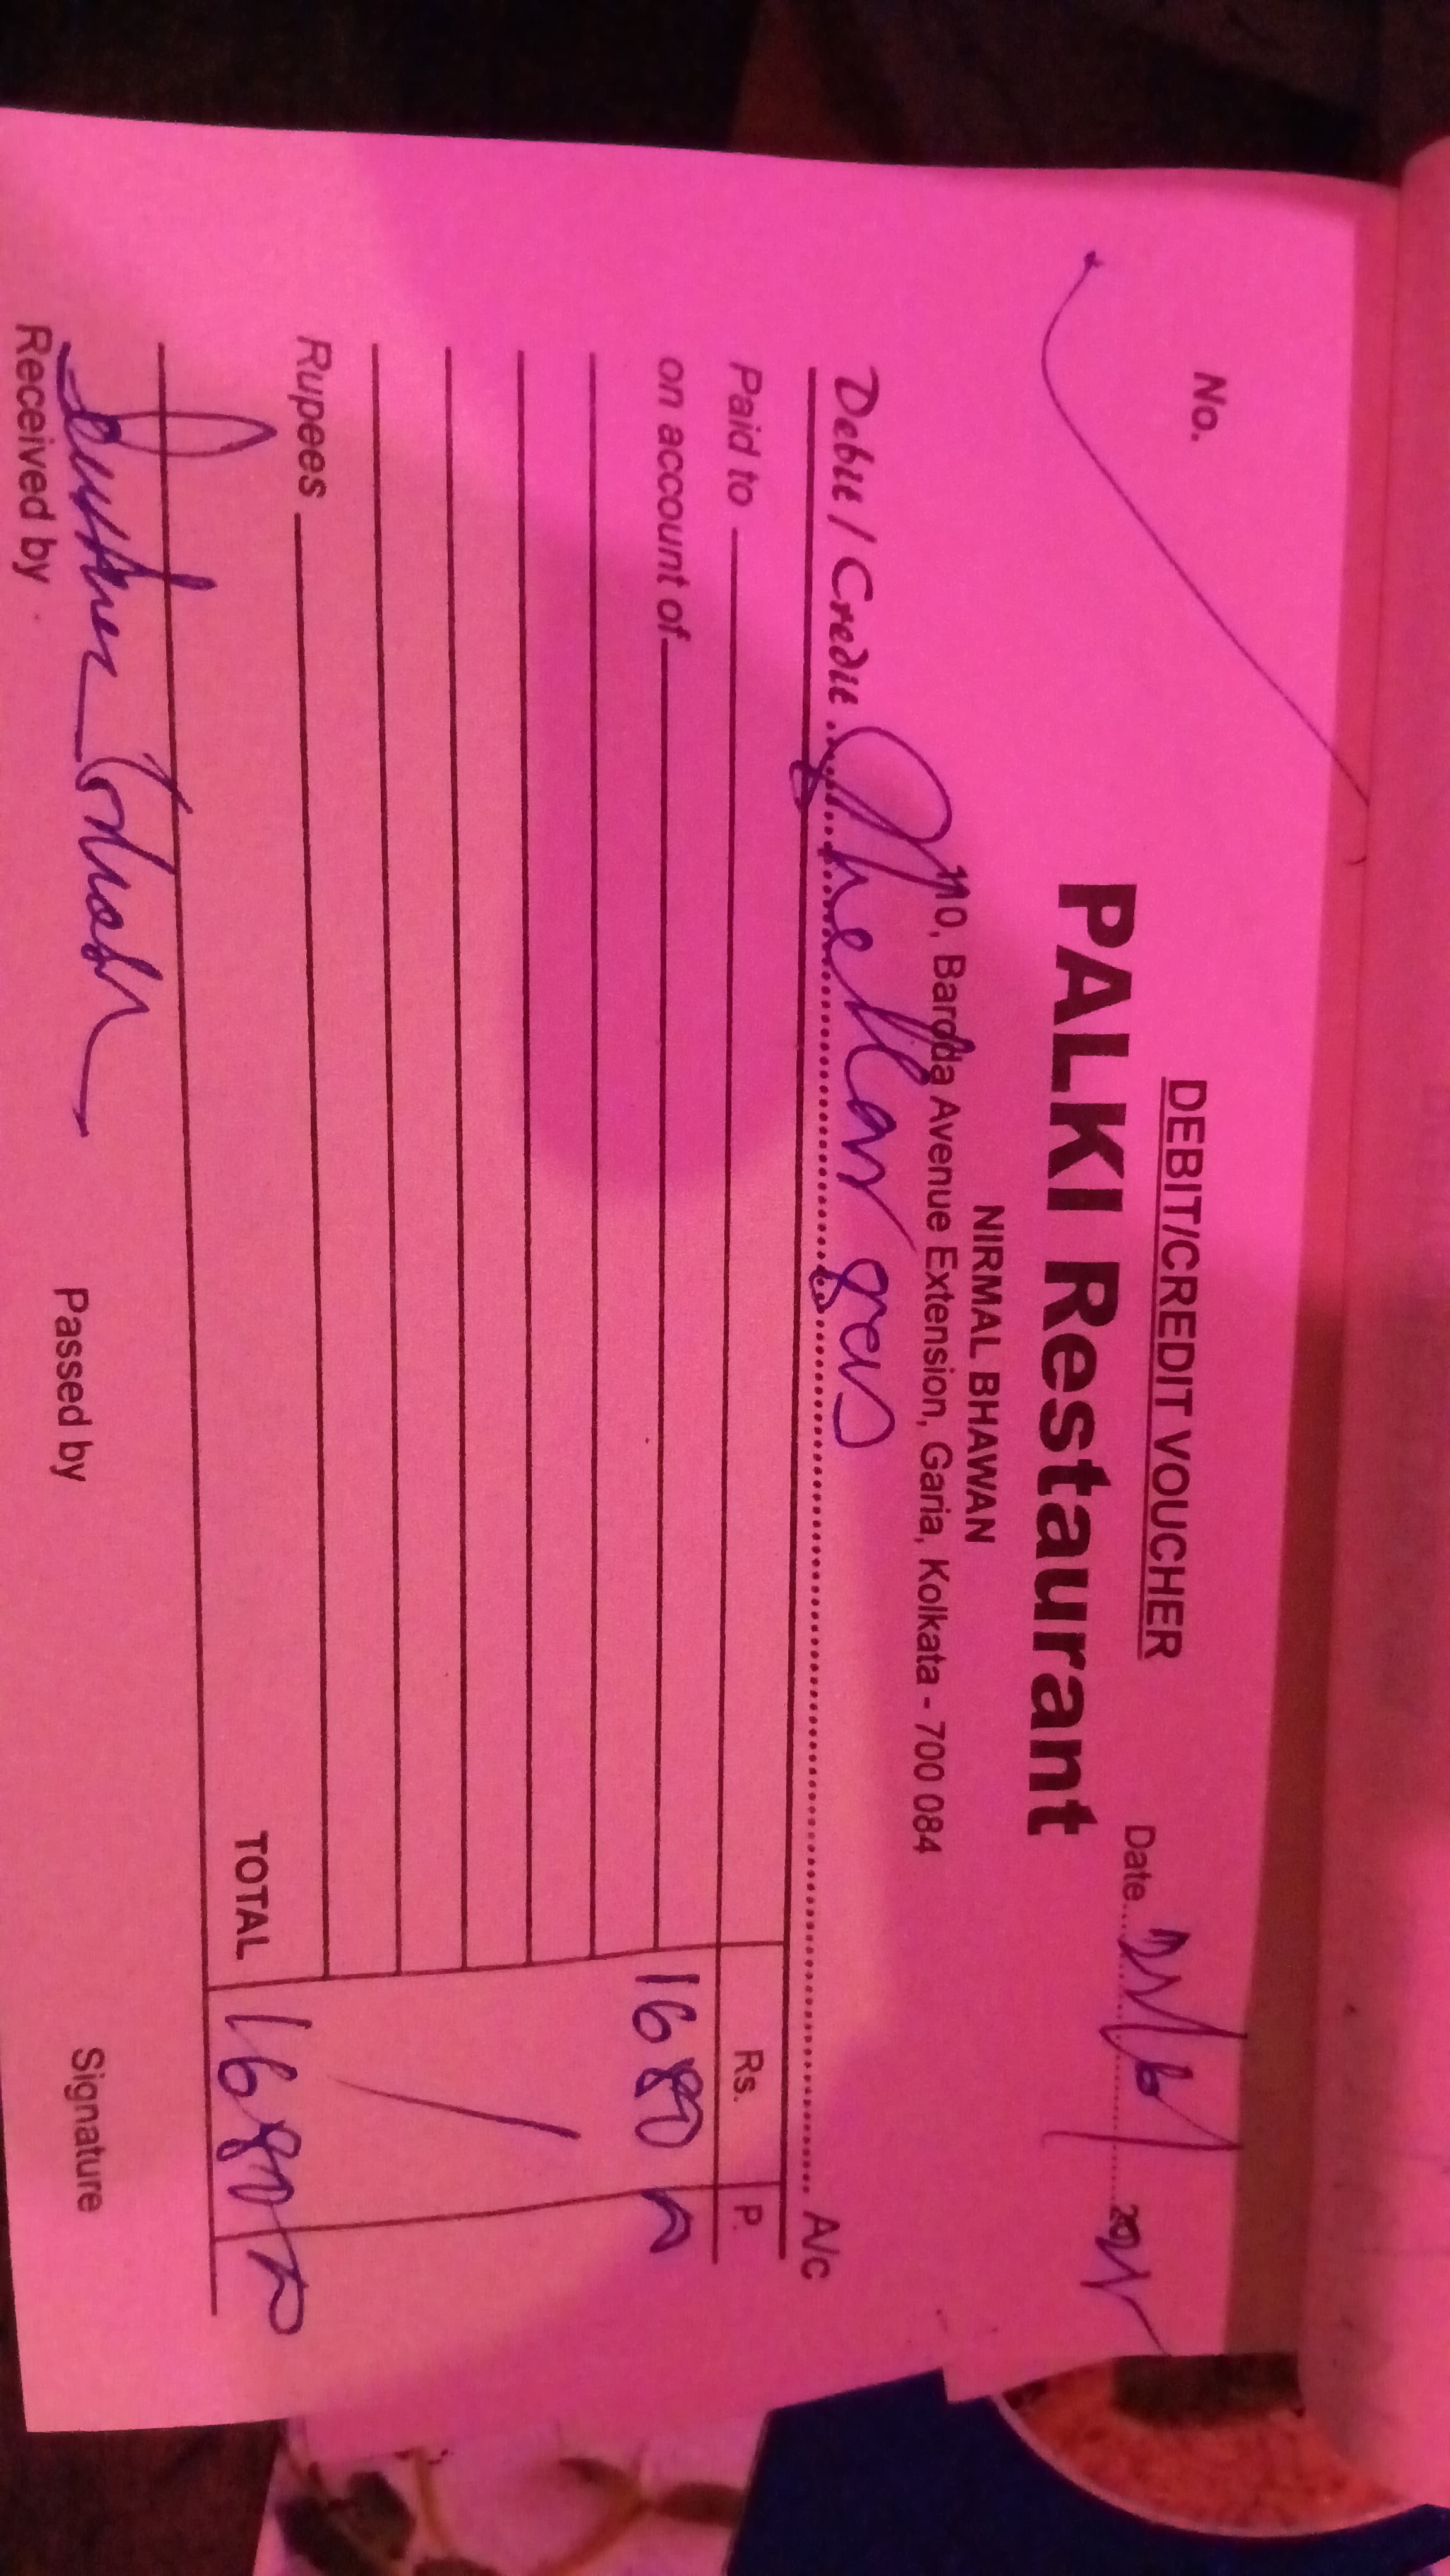 DEBIT/CREDIT VOUCHER
No.
Date
PALKI Restaurant
NIRMAL BHAWAN
110, Baroda Avenue Extension, Garia, Kolkata - 700 084
Debit / Credit ........ A/c
Paid to Rs. P.
on account of 1680
Rupees
TOTAL 1680
Received by Passed by Signature